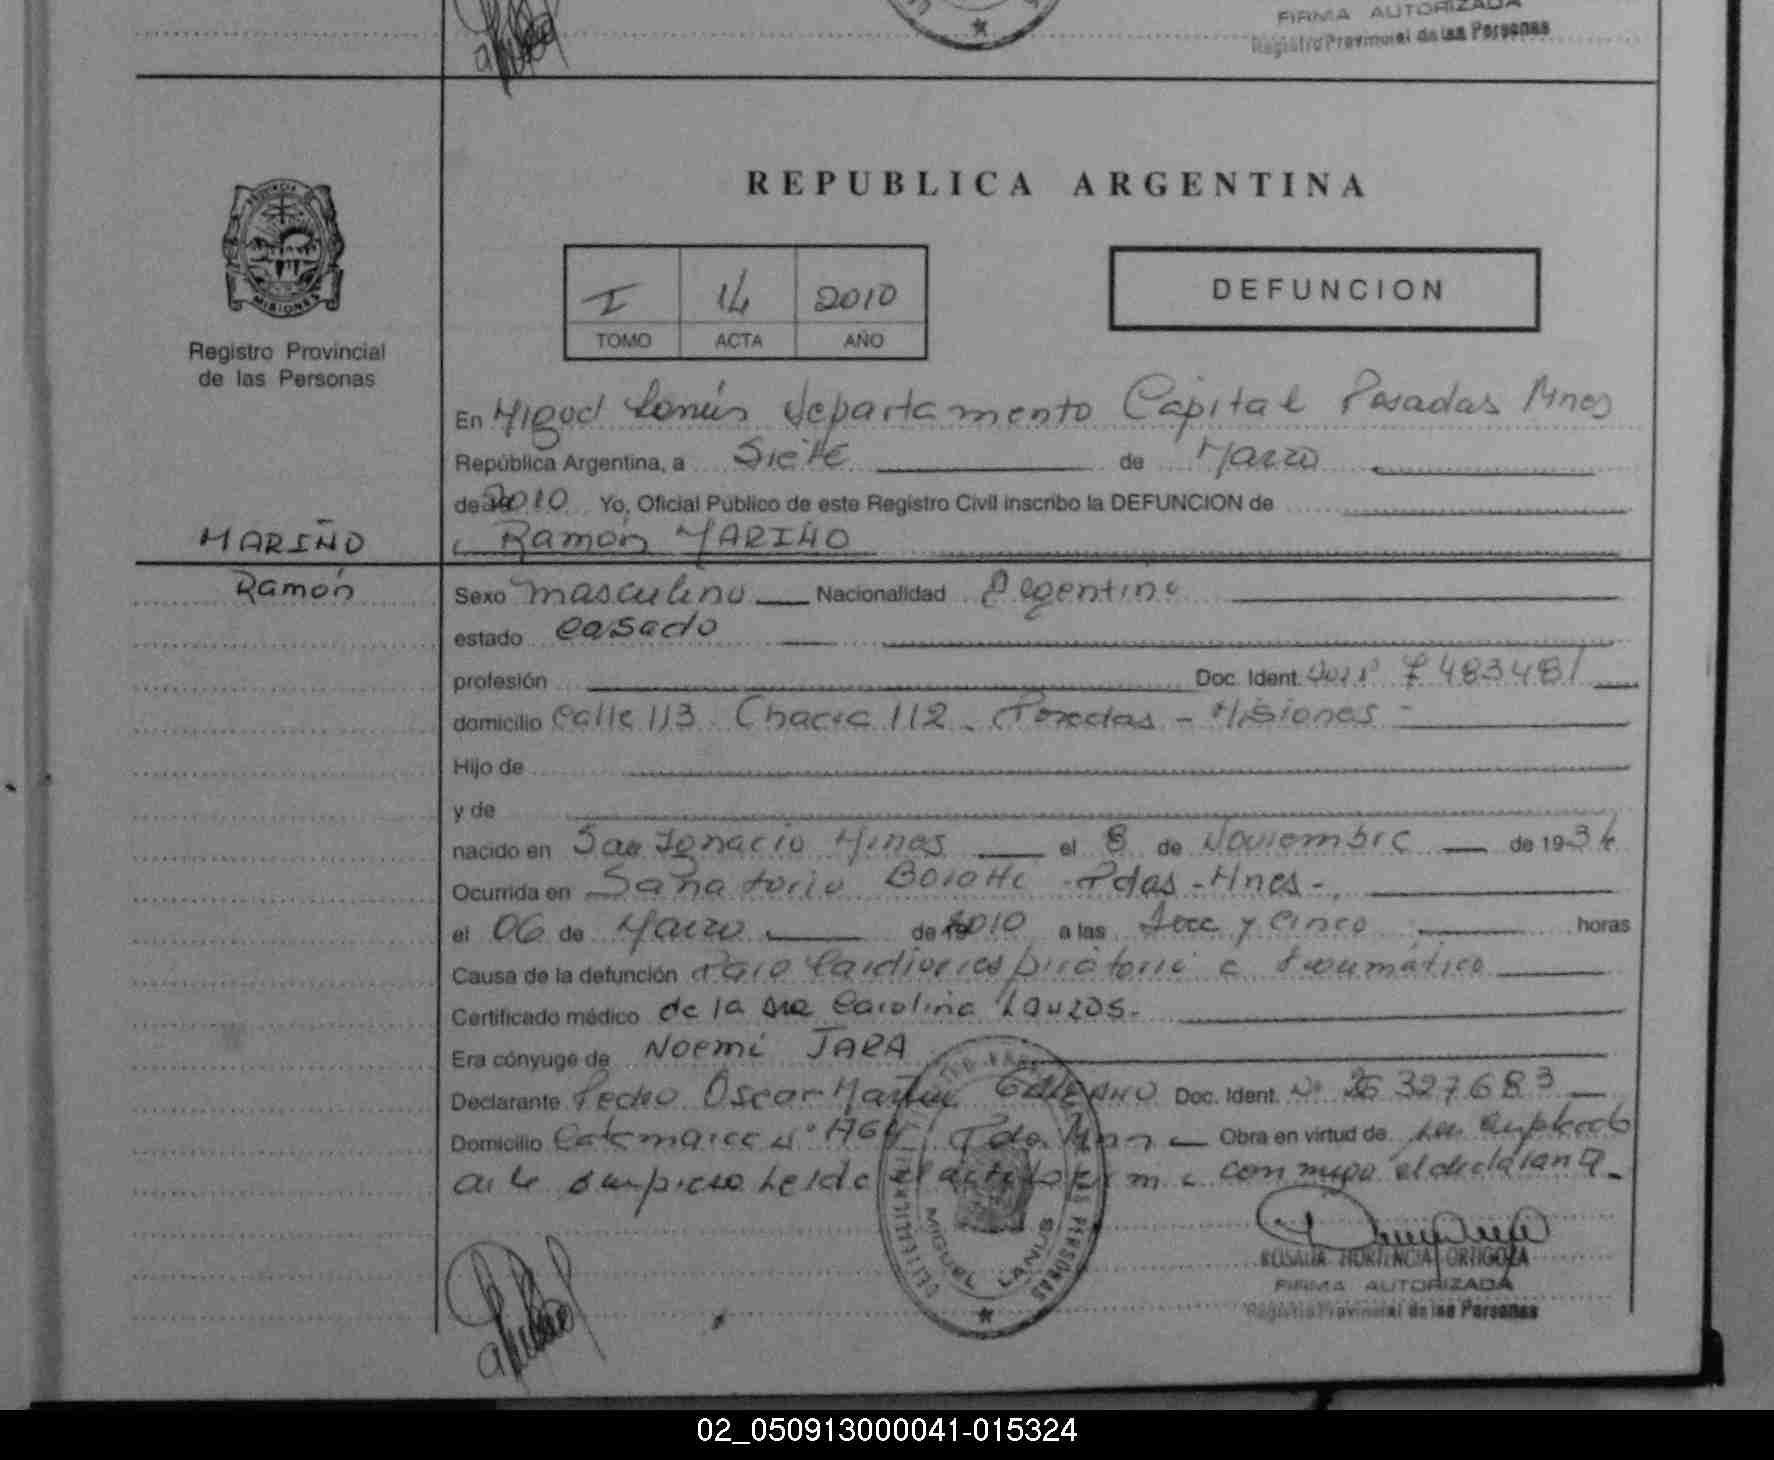 FIRMA AUTORIZADA
Registro Provincial de las Personas
PROVINCIA
MISIONES
Registro Provincial
de las Personas
REPUBLICA ARGENTINA
I 14 2010
TOMO ACTA AÑO
DEFUNCION
En Miguel Lanús departamento Capital Posadas Mnes
República Argentina, a Siete de Marzo
de 2010 Yo, Oficial Público de este Registro Civil inscribo la DEFUNCION de
MARIÑO
Ramón MARIÑO
Ramón
Sexo masculino Nacionalidad Argentino
estado Casado
profesión Doc. Ident. 7483481
domicilio Calle 113 Chacra 112 - Posadas - Misiones -
Hijo de
y de
nacido en San Ignacio Mnes el 8 de Noviembre de 1934
Ocurrida en Sanatorio Boratti - Pdas - Mnes -
el 06 de Marzo de 2010 a las doce y cinco horas
Causa de la defunción Paro Cardiorrespiratorio traumático
Certificado médico de la Dra Carolina
Era cónyuge de Noemi JARA
Declarante Pedro Oscar Martin GALEANO Doc. Ident. Nº 26327683
Domicilio Catamarca Nº 1764 Pdas Mnes Obra en virtud de ser empleado
de la empresa Leida el acta la firma conmigo el declarante.
MIGUEL LANUS
ROSALIA HORTENCIA ORTIGOZA
FIRMA AUTORIZADA
Registro Provincial de las Personas
02_050913000041-015324